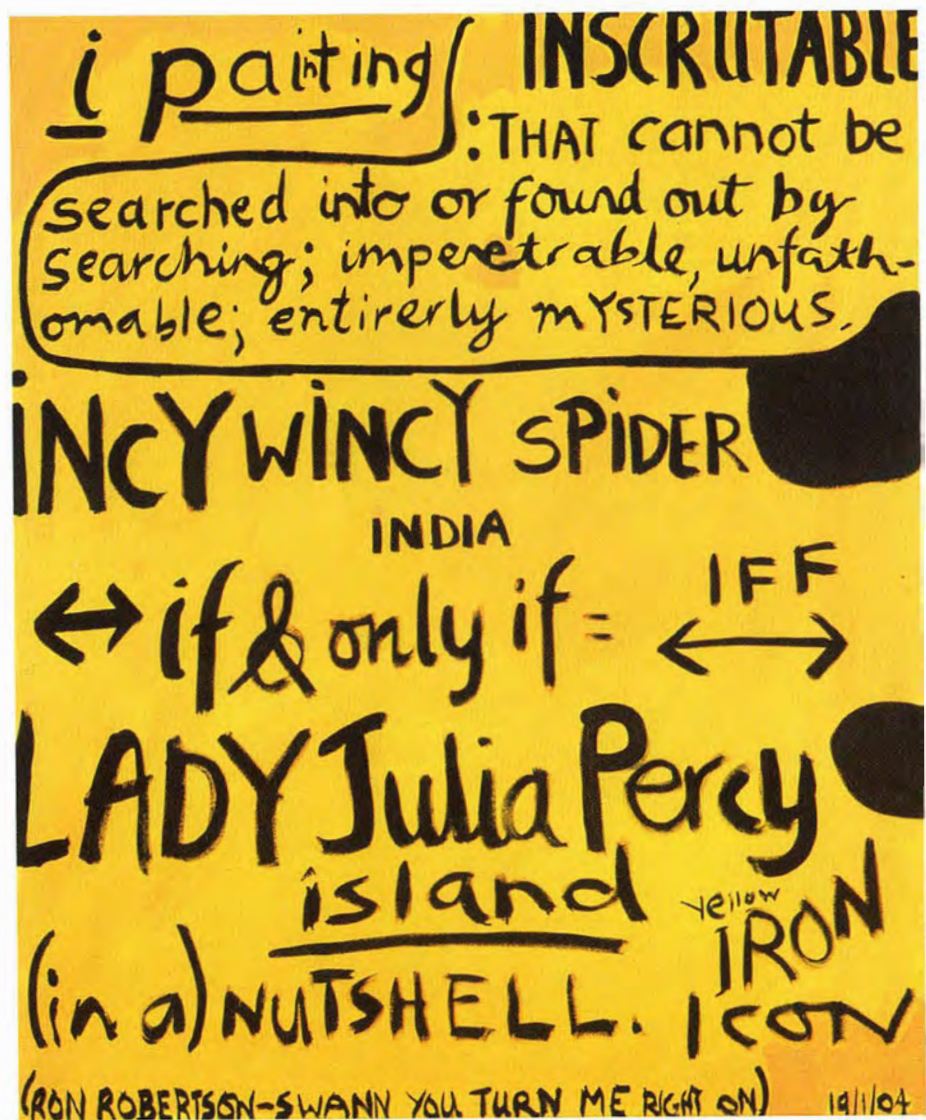 i painting
INSCRUTABLE
:THAT cannot be
searched into or found out by
searching; impenetrable, unfath-
omable; entirerly mYSTERIOUS.
iNCY WiNCY SPiDER
INDIA
↔ if & only if = IFF ↔
LADY Julia Percy
island
yellow
IRON
(in a) NUTSHELL. ICON
(RON ROBERTSON-SWANN YOU TURN ME RIGHT ON) 19/1/04